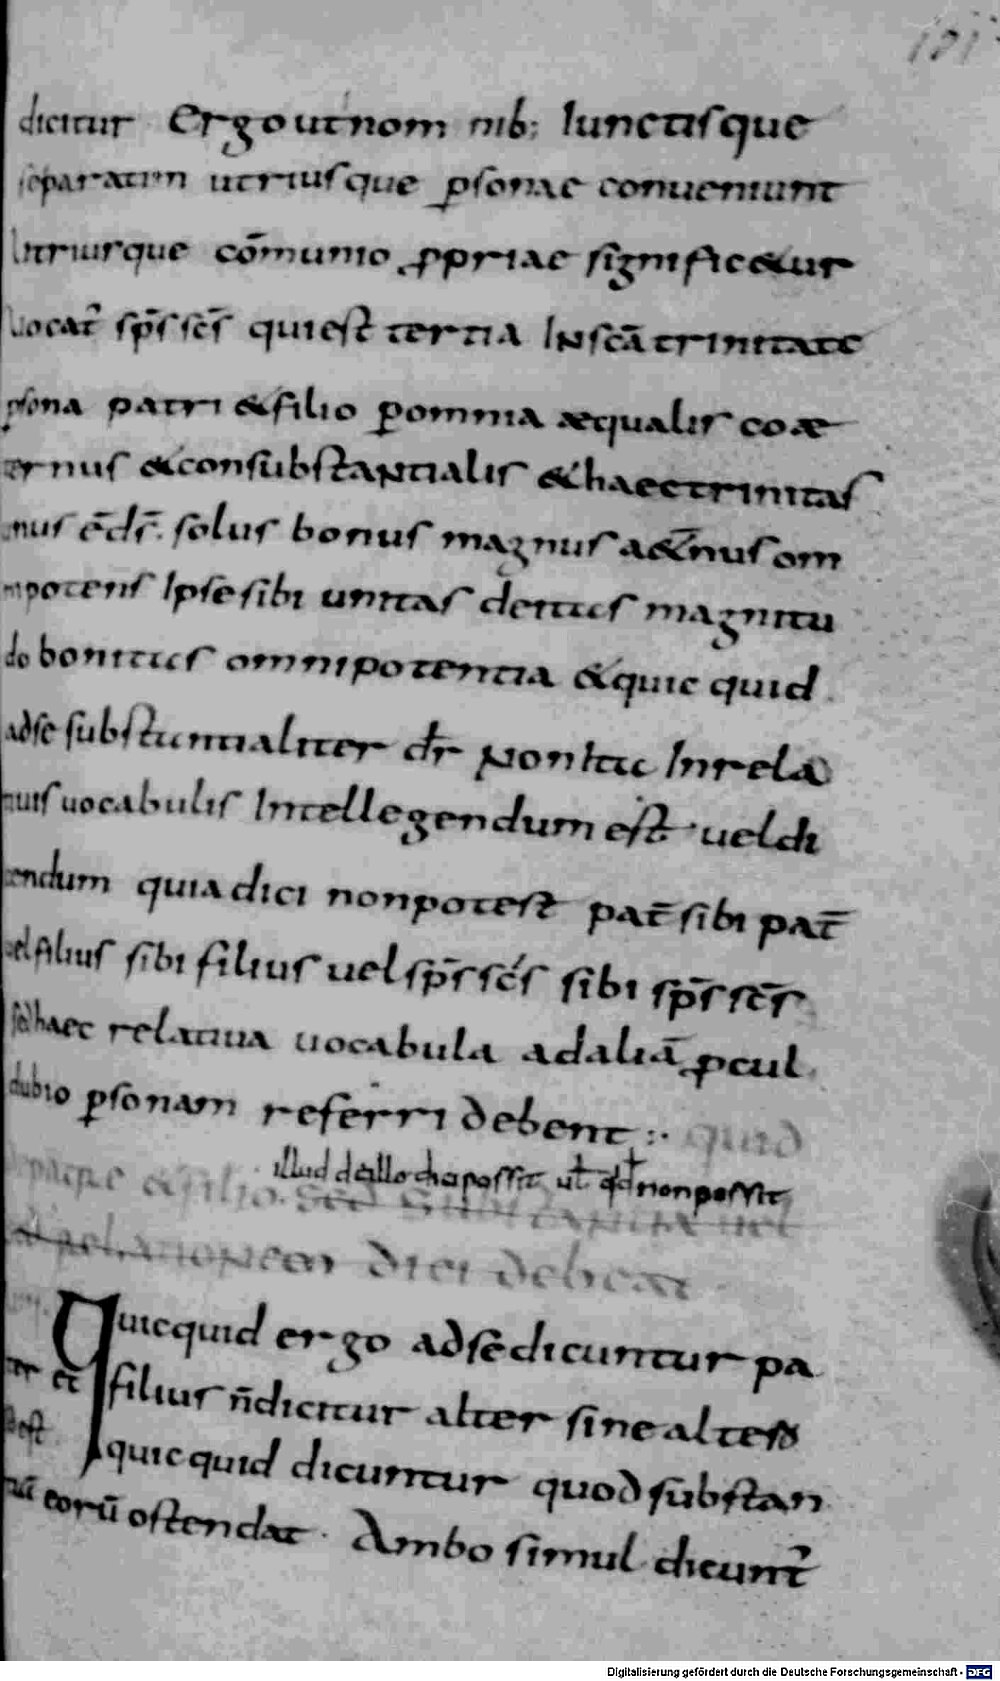 101
dicitur Ergo ut nom nib; Iunctisque
separatim utriusque ꝑsonae conueniunt
Utriusque cōmunio ꝓpriae significetur
Uocat᷑ sp̄s sc̄s qui est tertia In sc̄a trinitate
ꝑsona patri & filio ꝑ omnia aequalis coae
ternus & consubstantialis & haec trinitas
unus ē ds̄. solus bonus magnus aet̄nus om
nipotens Ipse sibi unitas deitas magnitu
do bonitas omnipotentia & quic quid
ad se substantialiter dr̄ Non ita In rela
tiuis uocabulis Intellegendum est uel di
cendum quia dici non potest pat̄ sibi pat̄
uel filius sibi filius uel sp̄s sc̄s sibi sp̄s sc̄s
sed haec relatiua uocabula ad aliā ꝓcul
dubio ꝑsonam referri debent :· quid
illud de illo dici possit ul̄ qd̄ non possit
de patre & filio sed substantiae uel
relationem dici debeat
Quicquid ergo ad se dicuntur pa
ter et filius n̄ dicitur alter sine altero
id est quicquid dicuntur quod substan
tiā eorū ostendat · Ambo simul dicunt᷑
Digitalisierung gefördert durch die Deutsche Forschungsgemeinschaft - DFG